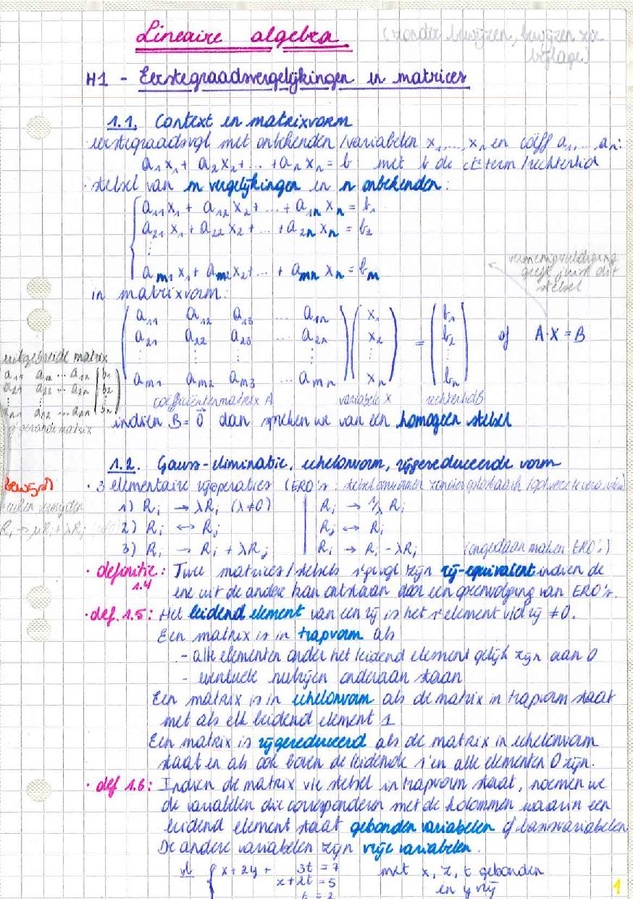 Lineaire algebra
(zonder bewijzen, bewijzen zie bijlage)
H1 - Eerstegraadsvergelijkingen en matrices
1.1. Context en matrixvorm
· eerstegraadsvgl met onbekenden/variabelen x₁,...,xₙ en coëff a₁,...,aₙ:
a₁x₁ + a₂x₂+...+aₙxₙ = b met b de cte term/rechterlid
· stelsel van m vergelijkingen en n onbekenden:
a₁₁x₁ + a₁₂x₂ + ... + a₁ₙxₙ = b₁
a₂₁x₁ + a₂₂x₂ + ... + a₂ₙxₙ = b₂
⋮
aₘ₁x₁ + aₘ₂x₂ + ... + aₘₙxₙ = bₘ
vermenigvuldiging
geeft juist dit
stelsel
in matrixvorm:
a₁₁ a₁₂ a₁₃ ... a₁ₙ x₁ b₁
a₂₁ a₂₂ a₂₃ ... a₂ₙ x₂ = b₂ of A·X = B
⋮ ⋮ ⋮ ⋮ ⋮ ⋮
aₘ₁ aₘ₂ aₘ₃ ... aₘₙ xₙ bₙ
coëfficiëntenmatrix A variabele X rechterlid B
uitgebreide matrix
a₁₁ a₁₂ ... a₁ₙ | b₁
a₂₁ a₂₂ ... a₂ₙ | b₂
indien B = 0⃗ dan spreken we van een homogeen stelsel
1.2. Gauss-eliminatie, echelonvorm, rijgereduceerde vorm
· 3 elementaire rijoperaties (ERO's:
1) Rᵢ → λRᵢ (λ≠0) | Rᵢ → 1/λ Rᵢ
2) Rᵢ ↔ Rⱼ | Rⱼ ↔ Rᵢ
3) Rᵢ → Rᵢ + λRⱼ | Rᵢ → Rᵢ - λRⱼ (ongedaan maken ERO's)
· definitie 1.4: Twee matrices/stelsels zijn rij-equivalent indien de
ene uit de andere kan ontstaan door een opeenvolging van ERO's.
· def. 1.5: Het leidend element van een rij is het 1ᵉ element vld rij ≠0.
Een matrix is in trapvorm als
- alle elementen onder het leidend element gelijk zijn aan 0
- eventuele nulrijen onderaan staan
Een matrix is in echelonvorm als de matrix in trapvorm staat
met als elk leidend element 1
Een matrix is rijgereduceerd als de matrix in echelonvorm
staat en als ook boven de leidende 1'en alle elementen 0 zijn.
· def 1.6: Indien de matrix vie stelsel in trapvorm staat, noemen we
de variabelen die corresponderen met de kolommen waarin een
leidend element staat gebonden variabelen of basisvariabelen
De andere variabelen zijn vrije variabelen.
x + 2y + 3t = 7 met x, z, t gebonden
z + 2t = 5 en y vrij
t = 2
1